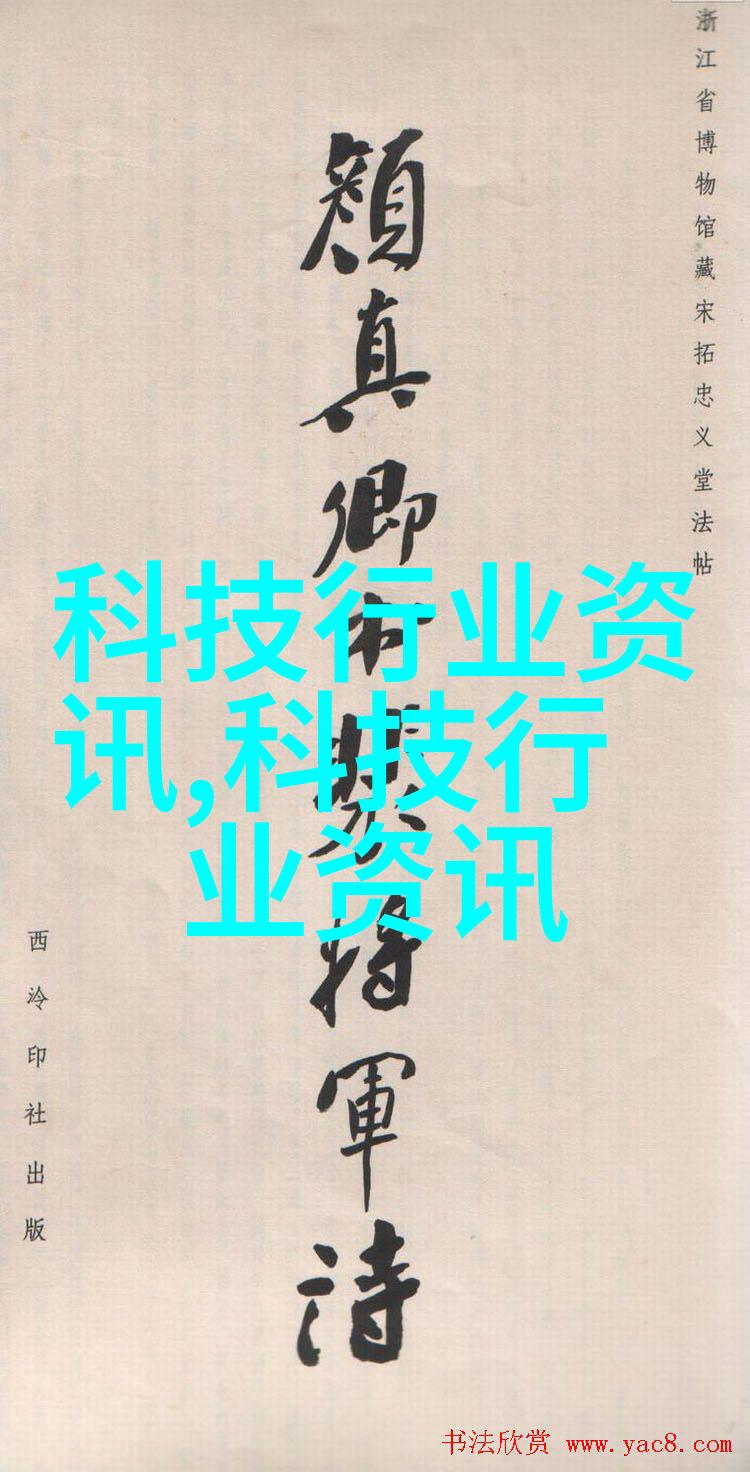 浙江省博物馆藏宋拓忠义堂法帖
顏真卿书裴将軍詩
科技行业资
讯,科技行
业资讯
西泠印社出版
书法欣赏 www.yac8.com